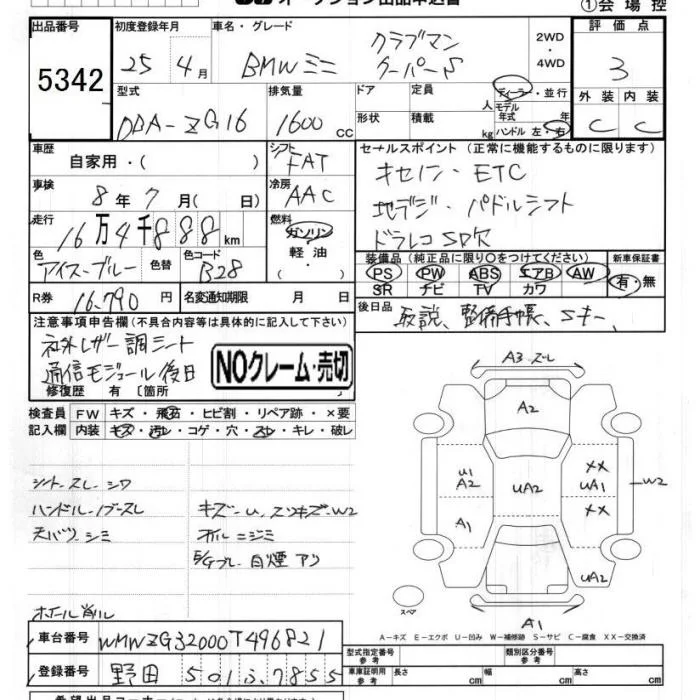 オークション出品申込書
①会場控
出品番号 初度登録年月 車名・グレード 2WD・4WD 評価点
5342 25 4月 BMWミニ クラブマン クーパーS 3
型式 排気量 ドア 定員 人 ディーラー・並行 外装 内装
DBA-ZG16 1600 CC 形状 積載 kg モデル年式 年 ハンドル 左・右 C C
車歴 自家用・( ) シフト FAT セールスポイント (正常に機能するものに限ります)
車検 8年7月( 日) 冷房 AAC キセノン・ETC
走行 16万4千888km 燃料 ガソリン 軽油 ・( ) 地デジ・パドルシフト
ドラレコSD欠
色 アイスブルー 色替 色コード B28 装備品 (純正品に限り○をつけてください) 新車保証書
PS PW ABS エアB AW 有・無
SR ナビ TV カワ
R券 16,790円 名変通知期限 月 日
後日品 取説、整備手帳、Sキー
注意事項申告欄(不具合内容等は具体的に記入して下さい)
社外レザー調シート
通信モジュール後日
NOクレーム・売切
修復歴 有 〔箇所
検査員記入欄 FW キズ・飛石・ヒビ割・リペア跡・×要
内装 キズ・汚レ・コゲ・穴・スレ・キレ・破レ
シートスレ シワ
ハンドルノブスレ
天バリシミ
キズ〜U、スリキズ〜W2
オイルニジミ
E/Gブレ 白煙アリ
ホイール削ル
A3 スレ
A2
U1 A2
UA2
XX
UA1
XX
W2
A1
UA2
スペア
A1
A−キズ E−エクボ U−凹み W−補修跡 S−サビ C−腐食 XX−交換済
車台番号 WMWZG32000T496821
登録番号 野田 501 ふ 7855
型式指定番号 参考 類別区分番号 参考
車庫証明用 参考 長さ 幅 高さ